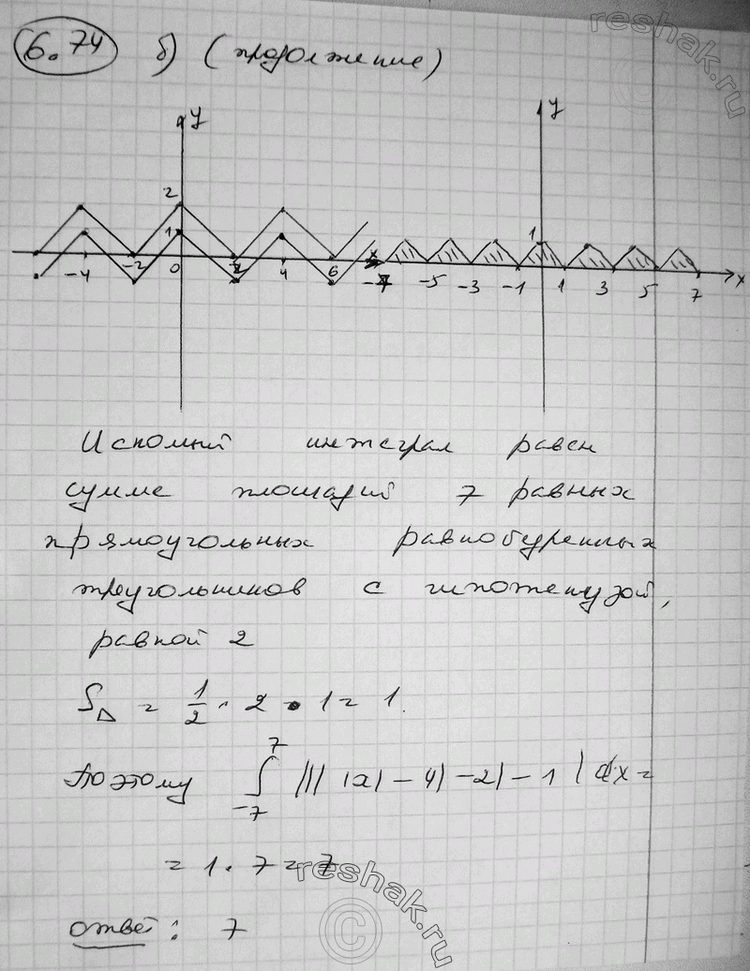 6.74 б) (продолжение)
y
2
1
-4 -2 0 2 4 6 x
y
1
-7 -5 -3 -1 1 3 5 7 x
Искомый интеграл равен
сумме площадей 7 равных
прямоугольных равнобедренных
треугольников с гипотенузой,
равной 2
S△ = 1/2 · 2 · 1 = 1.
Поэтому ∫₋₇⁷ ||||x| - 4| - 2| - 1| dx =
= 1 · 7 = 7
ответ: 7
reshak.ru
reshak.ru
©